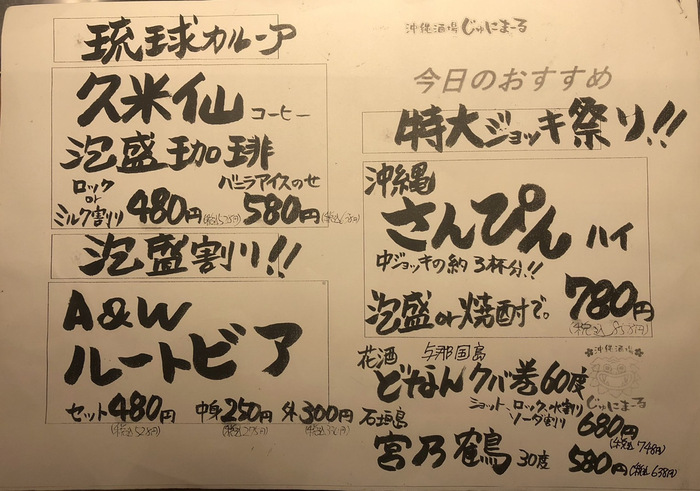 沖縄酒場 じゅにまーる
今日のおすすめ
特大ジョッキ祭り!!
沖縄
さんぴんハイ
中ジョッキの約3杯分!!
泡盛or焼酎で。 780円
(税込858円)
花酒 与那国島
どなんクバ巻60度
ショット、ロック、水割り
ソーダ割り 680円
(税込748円)
石垣島
宮乃鶴 30度 580円(税込638円)
沖縄酒場
じゅにまーる
琉球カルーア
久米仙 コーヒー
泡盛珈琲
ロック バニラアイスのせ
or
ミルク割り 480円(税込528円) 580円
泡盛割り!!
A&W
ルートビア
セット480円 中身250円 外300円
(税込528円) (税込275円) (税込330円)